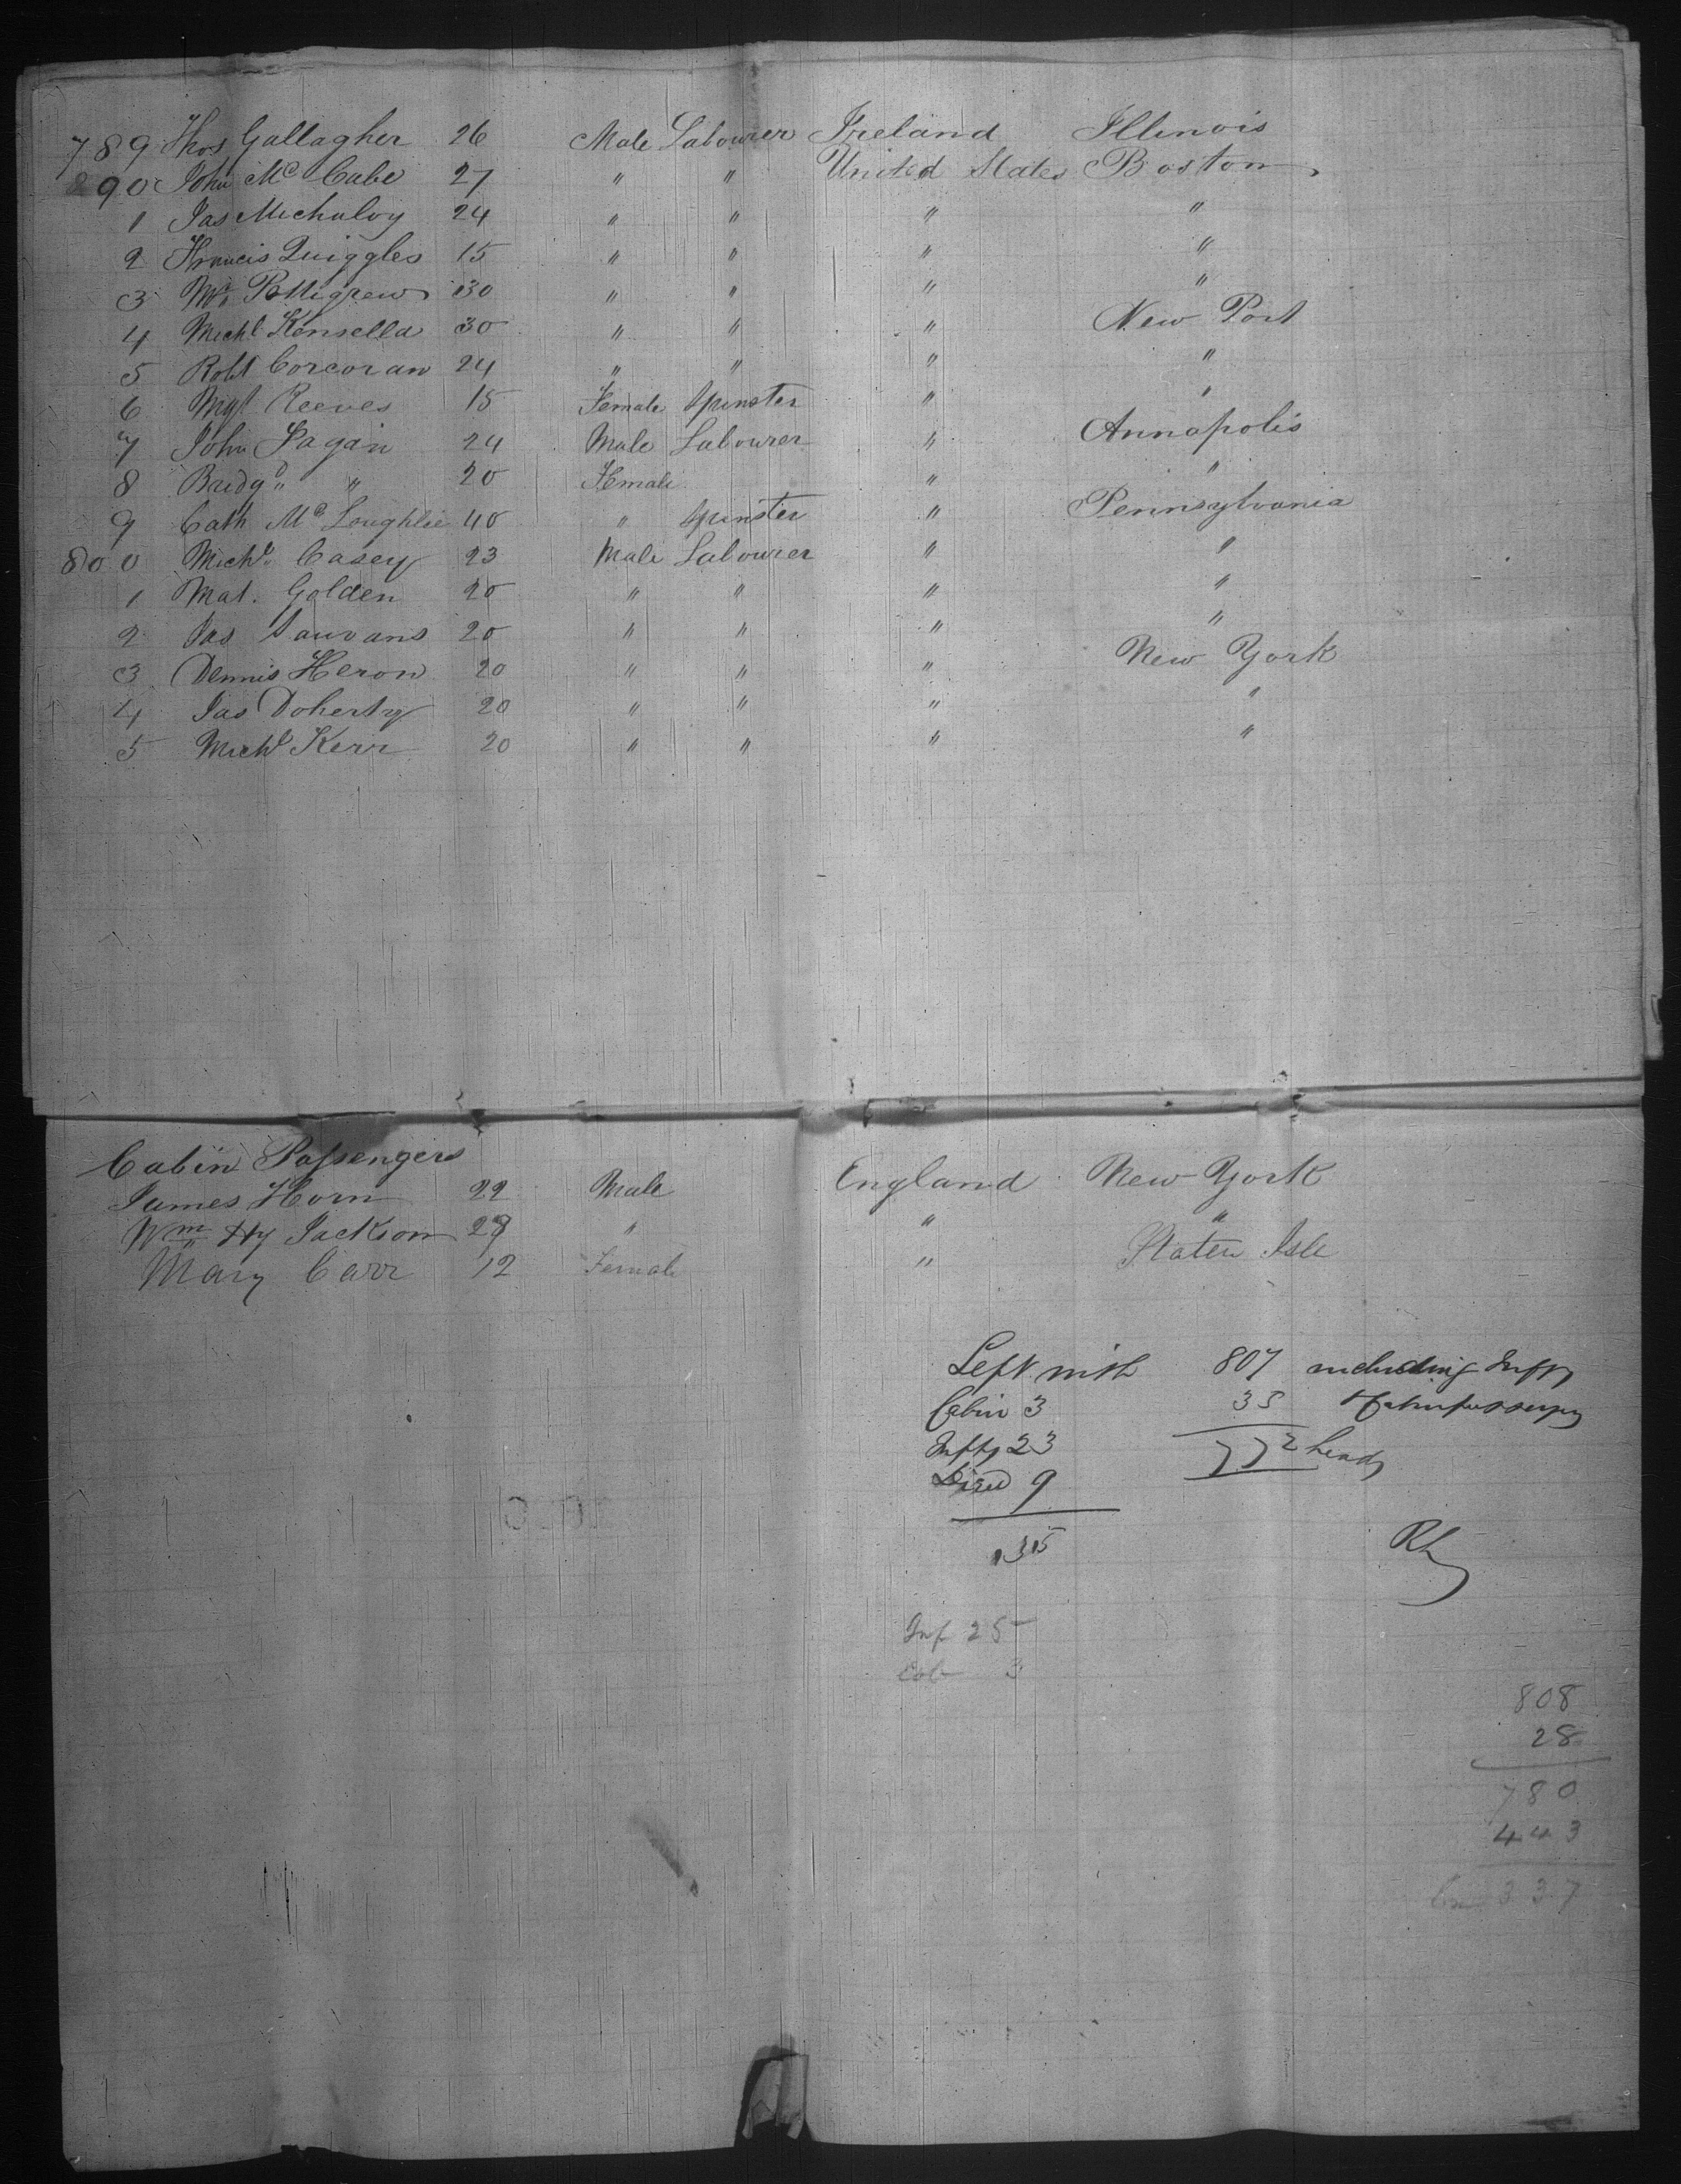 789 Thos Gallagher 26 Male Labourer Ireland Illinois
90 John Mc Cabe 27 " " United States Boston
1 Jas Mechuloy 24 " " " "
2 Francis Quiggles 15 " " " "
3 Wm Pettigrew 30 " " " "
4 Michl Kensella 30 " " " New Port
5 Robt Corcoran 24 " " " "
6 Mgt Reeves 15 Female Spinster " "
7 John Fagan 24 Male Labourer " Annapolis
8 Bridgd " 20 Female " "
9 Cath Mc Loughlin 40 " Spinster " Pennsylvania
800 Michl Casey 23 Male Labourer " "
1 Mat. Golden 20 " " " "
2 Jas 20 " " " "
3 Dennis Heron 20 " " " New York
4 Jas Doherty 20 " " " "
5 Michl Kerr 20 " " " "
Cabin Passengers
James Horn 22 Male England New York
Wm Hy Jackson 28 " " "
Mary Carr 12 Female " Staten Isle
Left with 807 including Infts
Cabin 3 35
Infts 23 772 heads
Died 9
35
Inf 25
Cab 3
808
28
780
443
337